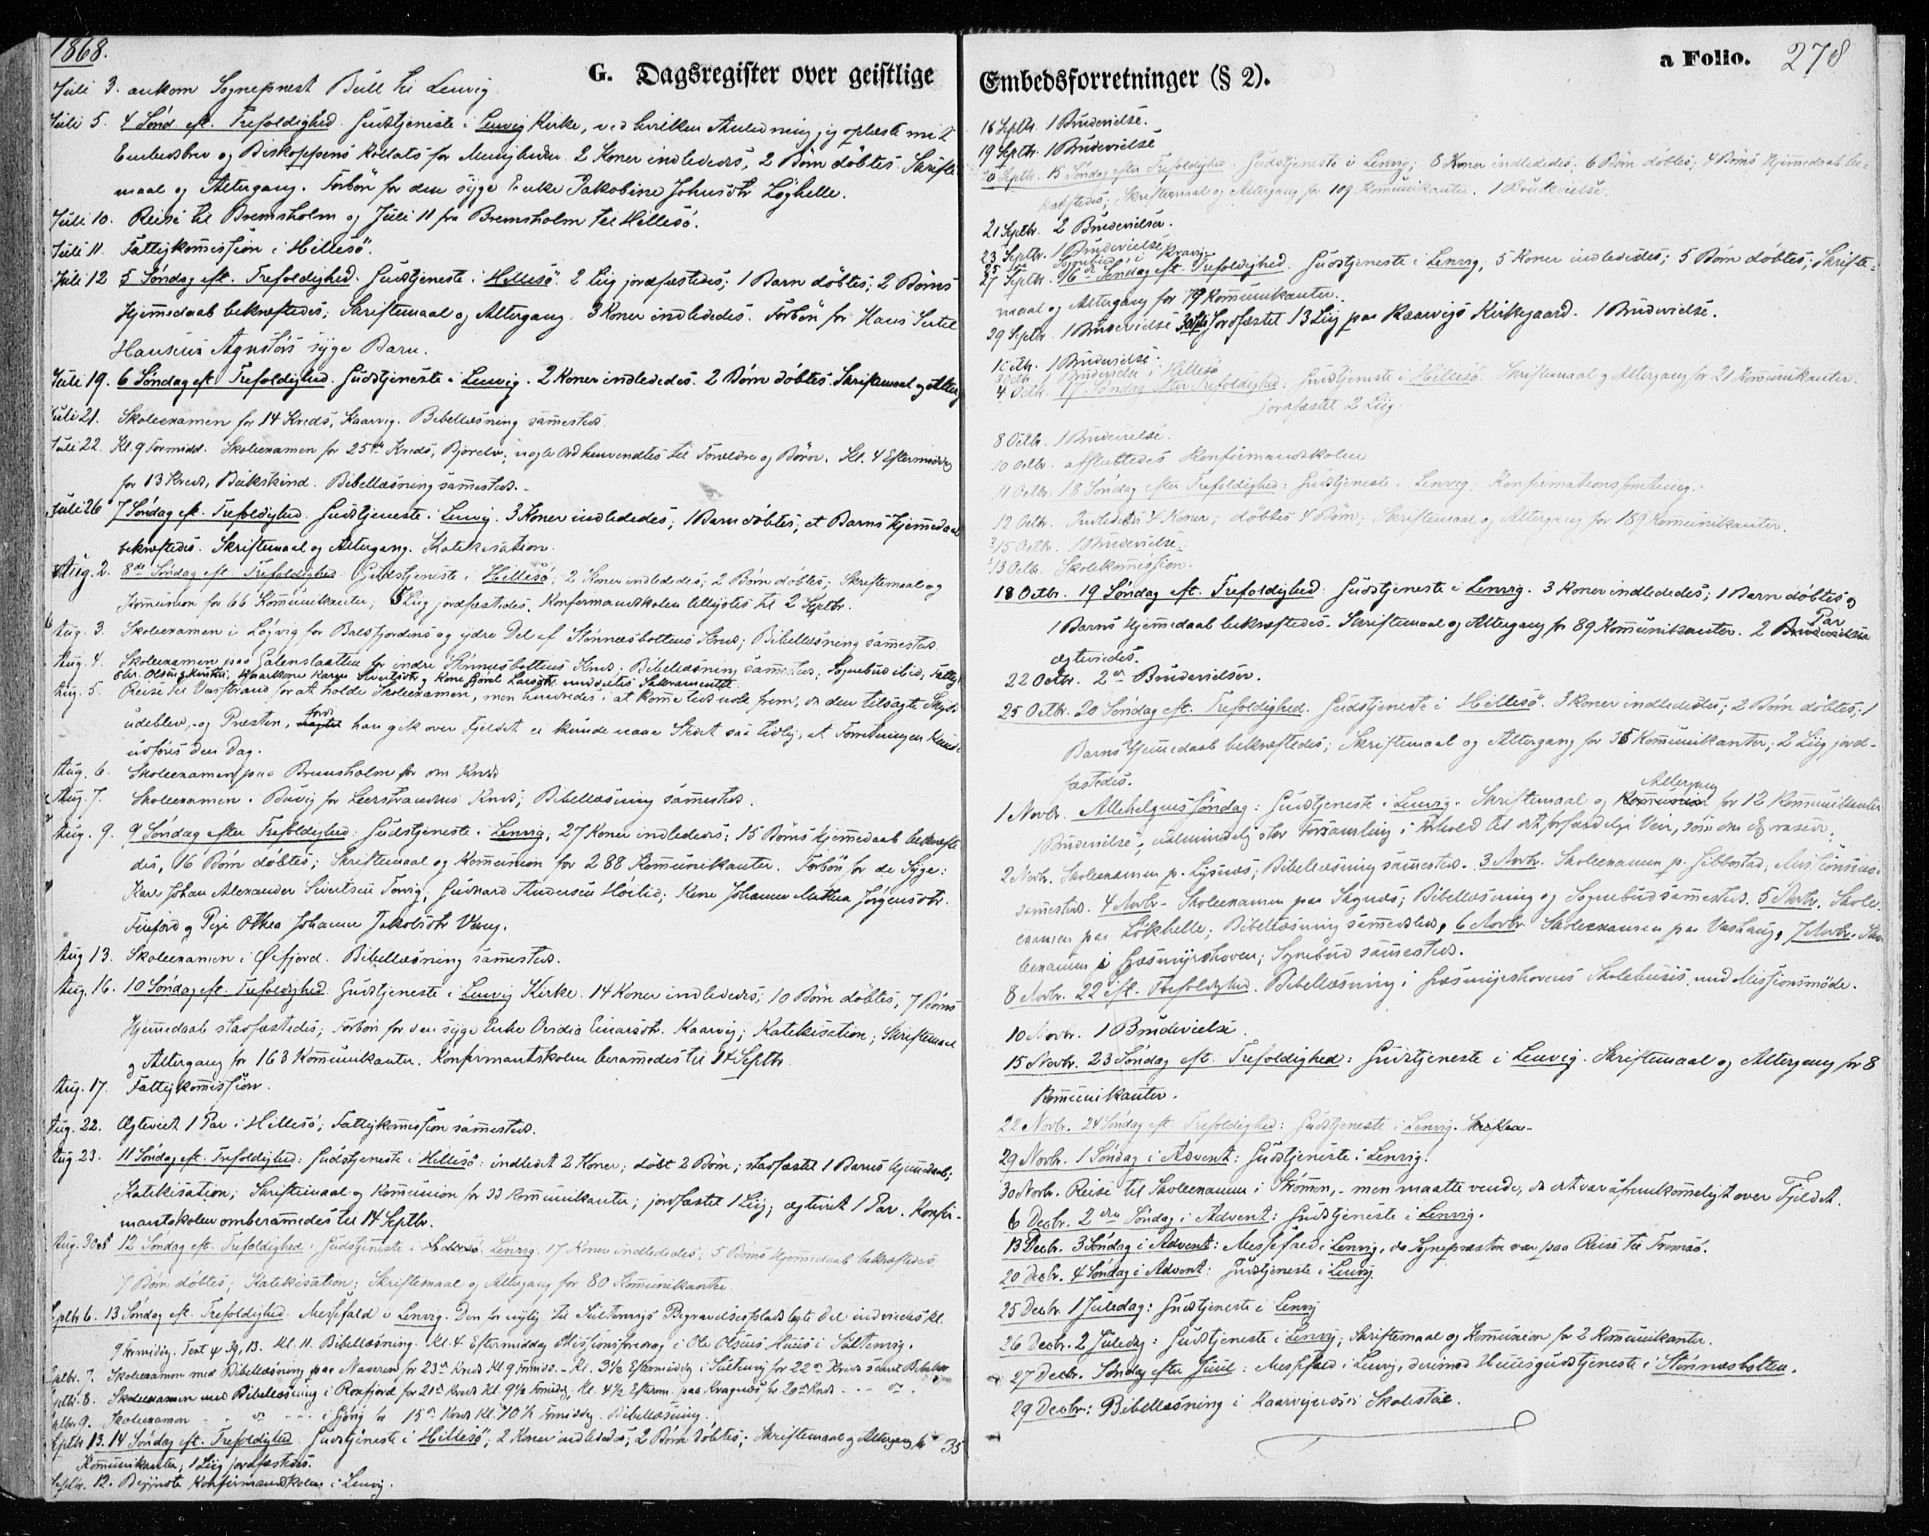 1868.
G. Dagsregister over geistlige
Juli 3. ankom Sogneprest Bull til Lenvig.
Juli 5. 4 Sönd. eft. Trefoldighed. Gudstjeneste i Lenvig Kirke, ved hvilken Anledning jeg oplæste mit
Embedsbrev og Biskoppens Kollats for Menigheden. 2 Koner indlededes, 2 Börn döbtes. Skrifte-
maal og Altergang. Forbön for den syge Enke Jakobine Johnsdtr Löghelle.
Juli 10. Reise til Bremsholm og Juli 11 fra Bremsholm til Hillesö.
Juli 11. Fattigkommission i Hillesö.
Juli 12 5 Söndag eft. Trefoldighed. Gudstjeneste i Hillesö. 2 Liig jordfæstedes; 1 Barn döbtes; 2 Börns
Hjemmedaab bekræftedes; Skriftemaal og Altergang. 3 Koner indlededes. Forbön for Hans
Hansens syge Barn.
Juli 19. 6 Söndag eft. Trefoldighed. Gudstjeneste i Lenvig. 2 Koner indlededes. 2 Börn döbtes Skriftemaal og Alterg
Juli 21. Skoleexamen for 14 Kreds, Kaarvig. Bibellæsning sammesteds.
Juli 22. Kl. 9 Formidd. Skoleexamen for 25de Kreds, Bjorelv; nogle Ord henvendtes til Forældre og Börn. Kl. 4 Eftermiddag
for 13 Kreds, Bukskind. Bibellæsning sammesteds.
Juli 26 7 Söndag eft. Trefoldighed. Gudstjeneste i Lenvig. 3 Koner indlededes; 1 Barn döbtes; et Barns Hjemmedaab
bekræftedes. Skriftemaal og Altergang. Katekisation.
Aug. 2. 8de Söndag eft. Trefoldighed. Gudstjeneste i Hillesö; 2 Koner indlededes; 2 Börn döbtes; Skriftemaal og
Kommunion for 66 Kommunikanter; 5 Liig jordfæstedes. Konfirmandskolen tillystes til 2 Septbr.
Aug. 3. Skoleexamen i Löjvig for Balsfjordens og ydre Del af Stönnesbottens Kreds; Bibellæsning sammesteds.
Aug. 4. Skoleexamen paa for indre Stönnesbottens Kreds. Bibellæsning sammesteds; Sognebud ibid;
Aug. 5. Reise til for at holde Skoleexamen, men hindredes i at komme tidsnok frem, da den tilsagte Skyds
udeblev, og Præsten, fordi han gik over Fjeldet ei kunde naae Stedet saa tidlig, at Forretningen kunde
udføres den Dag.
Aug. 6. Skoleexamen paa Bremsholm for om Kreds
Aug. 7. Skoleexamen i Buvig for Leerstrandens Kreds; Bibellæsning sammesteds.
Aug. 9. 9 Söndag efter Trefoldighed: Gudstjeneste i Lenvig; 27 Koner indlededes; 15 Börns Hjemmedaab bekræfte-
des, 16 Börn döbtes; Skriftemaal og Kommunion for 288 Kommunikanter. Forbön for de Syge:
Karl Johan Alexander Sivertsen Torvig; Andersen Hóelid; Kone Johanna Mathea Jörgensdtr.
Finfjord og Pige Othea Johanna Jakobsdtr Vang.
Aug 13. Skoleexamen i Öifjord. Bibellæsning sammesteds.
Aug. 16. 10 Söndag eft. Trefoldighed. Gudstjeneste i Lenvig Kirke. 14 Koner indlededes, 10 Börn döbtes, 7 Börns
Hjemmedaab stadfæstedes; Forbön for den syge Enke Ovidia Einarsdtr. Kaarvig; Katekisation; Skriftemaal
og Altergang for 163 Kommunikanter. Konfirmantskolen berammedes til 14 Septbr.
Aug. 17. Fattigkommission.
Aug. 22. Ægteviet 1 Par i Hillesö; Fattigkommission sammesteds.
Aug. 23. 11 Söndag eft. Trefoldighed: Gudstjeneste i Hillesö: indledet 2 Koner; döbt 2 Börn; stadfæstet 1 Barns Hjemmedaab;
Katekisation; Skriftemaal og Kommunion for 33 Kommunikanter; jordfæstet 1 Liig; ægteviet 1 Par. Konfir-
mantskolen omberammedes til 14 Septbr.
Aug. 30 12 Söndag eft. Trefoldighed. Gudstjeneste i Lenvig. 17 Koner indlededes; 5 Börns Hjemmedaab bekræftedes.
7 Börn döbtes; Katekisation; Skriftemaal og Altergang for 80 Kommunikanter.
Septbr 6. 13 Söndag eft. Trefoldighed. Messefald i Lenvig. Den for nylig til Sultenvigs Begravelsesplads lagte Del indviedes Kl.
9 Formiddag. Text 4 Sg. 13. Kl. 11. Bibellæsning. Kl. 4 Eftermiddag Missionsforedrag i Ole Olsens Huus i Sultenvig.
Septbr. 7. Skoleexamen med Bibellæsning paa for 23de Kreds Kl 9 Formidd. - Kl. 3½ Eftermiddag i Sultenvig for 22de Kreds samt Bibellæs
Septbr. 8. Skoleexamen med Bibellæsning i Rossfjord for 21de Kreds Kl. 9½ Formiddag, Kl. 4½ Efterm. paa Kragnæs for 20de Kreds
Septbr. 9. Skoleexamen i Gjövig for 15de Kreds Kl. 10½ Formiddag. Bibellæsning.
Septbr 13. 14 Söndag eft. Trefoldighed. Gudstjeneste i Hillesö; 2 Koner indlededes; 2 Börn döbtes; Skriftemaal og Altergang for 35
Kommunikanter; 1 Liig jordfæstedes.
Septbr. 12. Begyndte Konfirmandskolen i Lenvig.
Embedsforretninger (§ 2).
a Folio. 278
16 Septbr. 1 Brudevielse.
19 Septbr. 1 Brudevielse
20 Septbr. 15 Söndag efter Trefoldighed. Gudstjeneste i Lenvig; 8 Koner indlededes; 6 Börn döbtes; 4 Börns Hjemmedaab be-
kræftedes; Skriftemaal og Altergang for 109 Kommunikanter. 1 Brudevielse.
21 Septbr. 2 Brudevielser.
23 Septbr. 1 Brudevielse
25 Sognebud i Kaarvig
27 Septbr. 16de Söndag eft. Trefoldighed. Gudstjeneste i Lenvig; 5 Koner indlededes; 5 Börn döbtes; Skrifte-
maal og Altergang for 79 Kommunikanter.
29 Septbr. 1 Brudevielse 30 Septbr Jordfæstet 13 Liig paa Kaarvigs Kirkegaard. 1 Brudevielse.
1 Octbr. 1 Brudevielse.
3 Octbr. 1 Brudevielse i Hillesö
4 Octbr. 17. Söndag efter Trefoldighed: Gudstjeneste i Hillesö. Skriftemaal og Altergang for 21 Kommunikanter.
jordfæstet 2 Liig.
8 Octbr. 1 Brudevielse.
10 Octbr. afsluttedes Konfirmandskolen
11 Octbr. 18 Söndag efter Trefoldighed: Gudstjeneste i Lenvig; Konfirmationsforretning.
12 Octbr. Indlededes 4 Koner; döbtes 4 Börn; Skriftemaal og Altergang for 159 Kommunikanter.
15 Octbr. 1 Brudevielse.
13 Octbr. Skolekommission.
18 Octbr. 19 Söndag eft. Trefoldighed: Gudstjeneste i Lenvig. 3 Koner indlededes; 1 Barn döbtes og
1 Barns Hjemmedaab bekræftedes. Skriftemaal og Altergang for 89 Kommunikanter. 2 Par
ægteviedes.
22 Octbr. 2de Brudevielser.
25 Octbr. 20 Söndag eft. Trefoldighed. Gudstjeneste i Hillesö. 3 Koner indlededes; 2 Börn döbtes; 1
Barns Hjemmedaab bekræftedes; Skriftemaal og Altergang for 35 Kommunikanter; 2 Liig jord-
fæstedes.
1 Novbr. Allehelgens Söndag: Gudstjeneste i Lenvig. Skriftemaal og Altergang for 12 Kommunikanter
1 Brudevielse; ualmindelig stor Forsamling i Forhold til det forfærdelige Veir, som den Dag rasede.
2 Novbr. Skoleexamen p. Lysnes; Bibellæsning sammesteds. 3 Novbr. Skoleexamen p. Gibbostad, Missionsm.
samesteds. 4 Novbr - Skoleexamen paa Skognes; Bibellæsning og Sognebud sammesteds. 5 Novbr. Skole-
examen paa Lökhelle; Bibellæsning sammesteds. 6 Novbr Skoleexamen paa Vashaug, 7 Novbr. Sko-
leexamen i Græsmyrshoven; Sognebud sammesteds.
8 Novbr. 22 eft. Trefoldighed. Bibellæsning i Græsmyrshovens Skolehuus, med Missionsmöde.
10 Novbr. 1 Brudevielse.
15 Novbr. 23 Söndag eft. Trefoldighed: Gudstjeneste i Lenvig. Skriftemaal og Altergang for 8
Kommunikanter.
22 Novbr. 24 Söndag eft. Trefoldighed: Gudstjeneste i Lenvig.
29 Novbr. 1 Söndag i Advent: Gudstjeneste i Lenvig.
30 Novbr. Reise til Skoleexamen i Strömmen, - men maatte vende, da det var ufremkommeligt over Fjeldet.
6 Decbr. 2den Söndag i Advent: Gudstjeneste i Lenvig.
13 Decbr. 3 Söndag i Advent: Messefald i Lenvig, da Sognepræsten var paa Reise til Tromsö.
20 Decbr. 4 Söndag i Advent: Gudstjeneste i Lenvig
25 Decbr. 1 Juledag: Gudstjeneste i Lenvig
26 Decbr. 2 Juledag: Gudstjeneste i Lenvig; Skriftemaal og Kommunion for 2 Kommunikanter.
27 Decbr. Söndag efter Juul: Messefald i Lenvig, derimod Huusgudstjeneste i Stönnesbotten.
29 Decbr: Bibellæsning i Kaarvigens Skolestue.